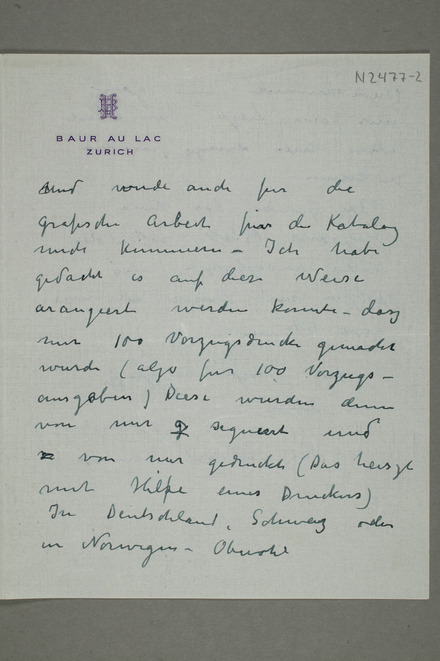 N2477-2
BAUR AU LAC
ZURICH
und wurde auch fur die
grafische Arbeit für die Katalog
mich kümmern - Ich habe
gedacht es auf diese Weise
arangiert werden konnte - dasz
nur 100 Vorzugsdrucke gemacht
wurde (also fur 100 Vorzugs-
ausgaben) Diese wurden dann
von mir signeert und
von mir gedruckt (Das heiszt
mit Hilfe eines Druckers)
In Deutschland, Schweiz oder
in Norwegen - Obwohl